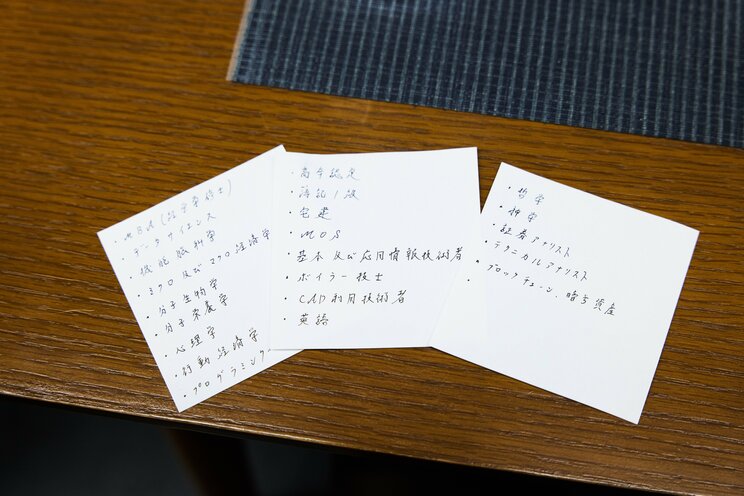 ・MBA(経営学修士)
・データサイエンス
・機能脳科学
・ミクロ及びマクロ経済学
・分子生物学
・分子栄養学
・心理学
・行動経済学
・プログラミング
・高卒認定
・簿記1級
・宅建
・MOS
・基本及び応用情報技術者
・ボイラー技士
・CAD利用技術者
・英語
・哲学
・神学
・証券アナリスト
・テクニカルアナリスト
・ブロックチェーン、暗号資産
・